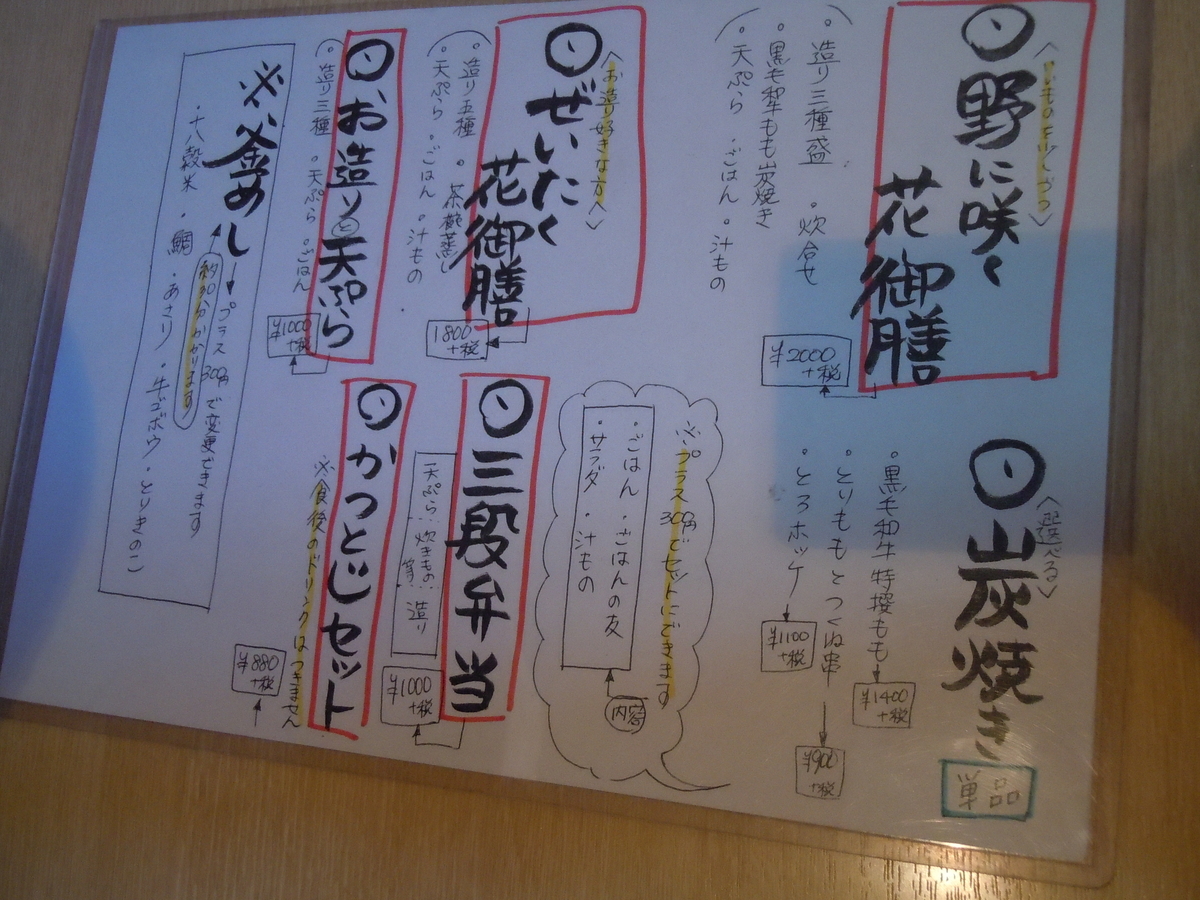 〈いいものを少しづつ〉
野に咲く
花御膳
・造り三種盛 ・炊合せ
・黒毛和牛もも炭焼き
・天ぷら ・ごはん ・汁もの
¥2000
+税
〈選べる〉
炭焼き
単品
・黒毛和牛特撰もも
¥1400
+税
・とりももとつくね串
¥900
+税
・とろホッケ
¥1100
+税
〈お造り好きな方へ〉
ぜいたく
花御膳
・造り五種 ・茶碗蒸し
・天ぷら ・ごはん ・汁もの
1800
+税
※プラス300円でセットにできます
内容
・ごはん ・ごはんの友
・サラダ ・汁もの
お造りと天ぷら
・造り三種 ・天ぷら ・ごはん
¥1000
+税
三段弁当
天ぷら 炊きもの 造り
等
¥1000
+税
かつとじセット
※食後のドリンクはつきません
¥880
+税
※釜めし
プラス300円で変更できます
約30分かかります
・十八穀米 ・鯛 ・あさり ・牛ゴボウ ・とりきのこ